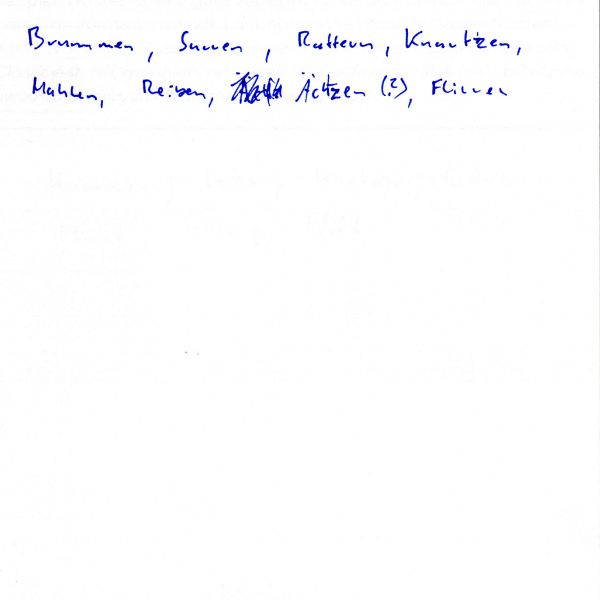 Brummen, Surren, Rattern, Knautzen,
Mahlen, Reiben, Ächzen (?), Flirren